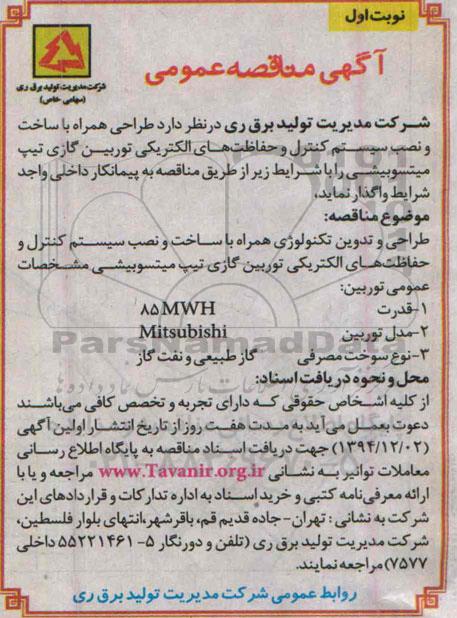 نوبت اول
آگهی مناقصه عمومی
شرکت مدیریت تولید برق ری
(سهامی خاص)
شرکت مدیریت تولید برق ری در نظر دارد طراحی همراه با ساخت
و نصب سیستم کنترل و حفاظت‌های الکتریکی توربین گازی تیپ
میتسوبیشی را با شرایط زیر از طریق مناقصه به پیمانکار داخلی واجد
شرایط واگذار نماید.
موضوع مناقصه:
طراحی و تدوین تکنولوژی همراه با ساخت و نصب سیستم کنترل و
حفاظت‌های الکتریکی توربین گازی تیپ میتسوبیشی مشخصات
عمومی توربین:
۱-قدرت ۸۵MWH
۲-مدل توربین Mitsubishi
۳-نوع سوخت مصرفی گاز طبیعی و نفت گاز
محل و نحوه دریافت اسناد:
از کلیه اشخاص حقوقی که دارای تجربه و تخصص کافی می‌باشند
دعوت بعمل می‌آید به مدت هفت روز از تاریخ انتشار اولین آگهی
(۱۳۹۴/۱۲/۰۲) جهت دریافت اسناد مناقصه به پایگاه اطلاع رسانی
معاملات توانیر به نشانی www.Tavanir.org.ir مراجعه و یا با
ارائه معرفی‌نامه کتبی و خرید اسناد به اداره تدارکات و قراردادهای این
شرکت به نشانی : تهران-جاده قدیم قم، باقرشهر،انتهای بلوار فلسطین،
شرکت مدیریت تولید برق ری (تلفن و دورنگار ۵-۵۵۲۲۱۴۶۱ داخلی
۷۵۷۷) مراجعه نمایند.
روابط عمومی شرکت مدیریت تولید برق ری
ParsNamadData